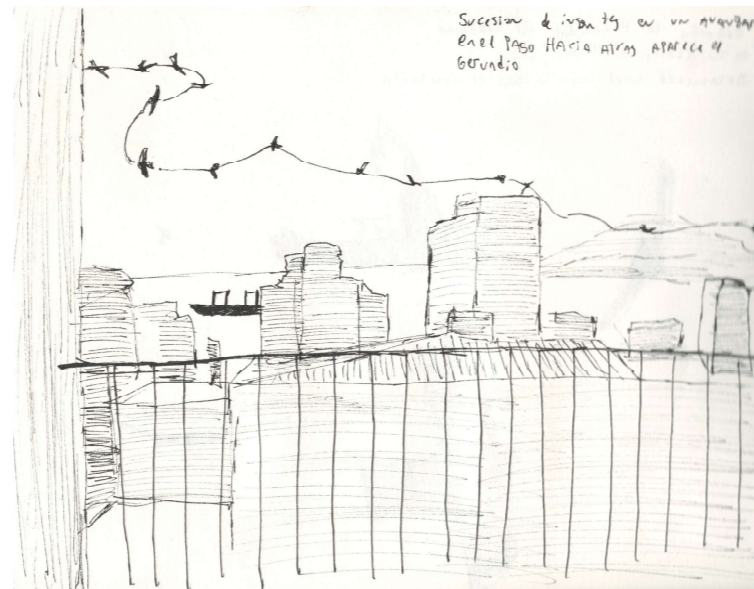 Sucesion de en un avanzar
en el PASO HACIA ATRAS APARECE el
Gerundio